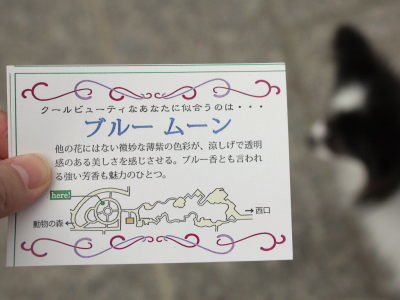 クールビューティなあなたに似合うのは・・・
ブルー ムーン
他の花にはない微妙な薄紫の色彩が、涼しげで透明
感のある美しさを感じさせる。ブルー香とも言われ
る強い芳香も魅力のひとつ。
here!
動物の森←
→西口